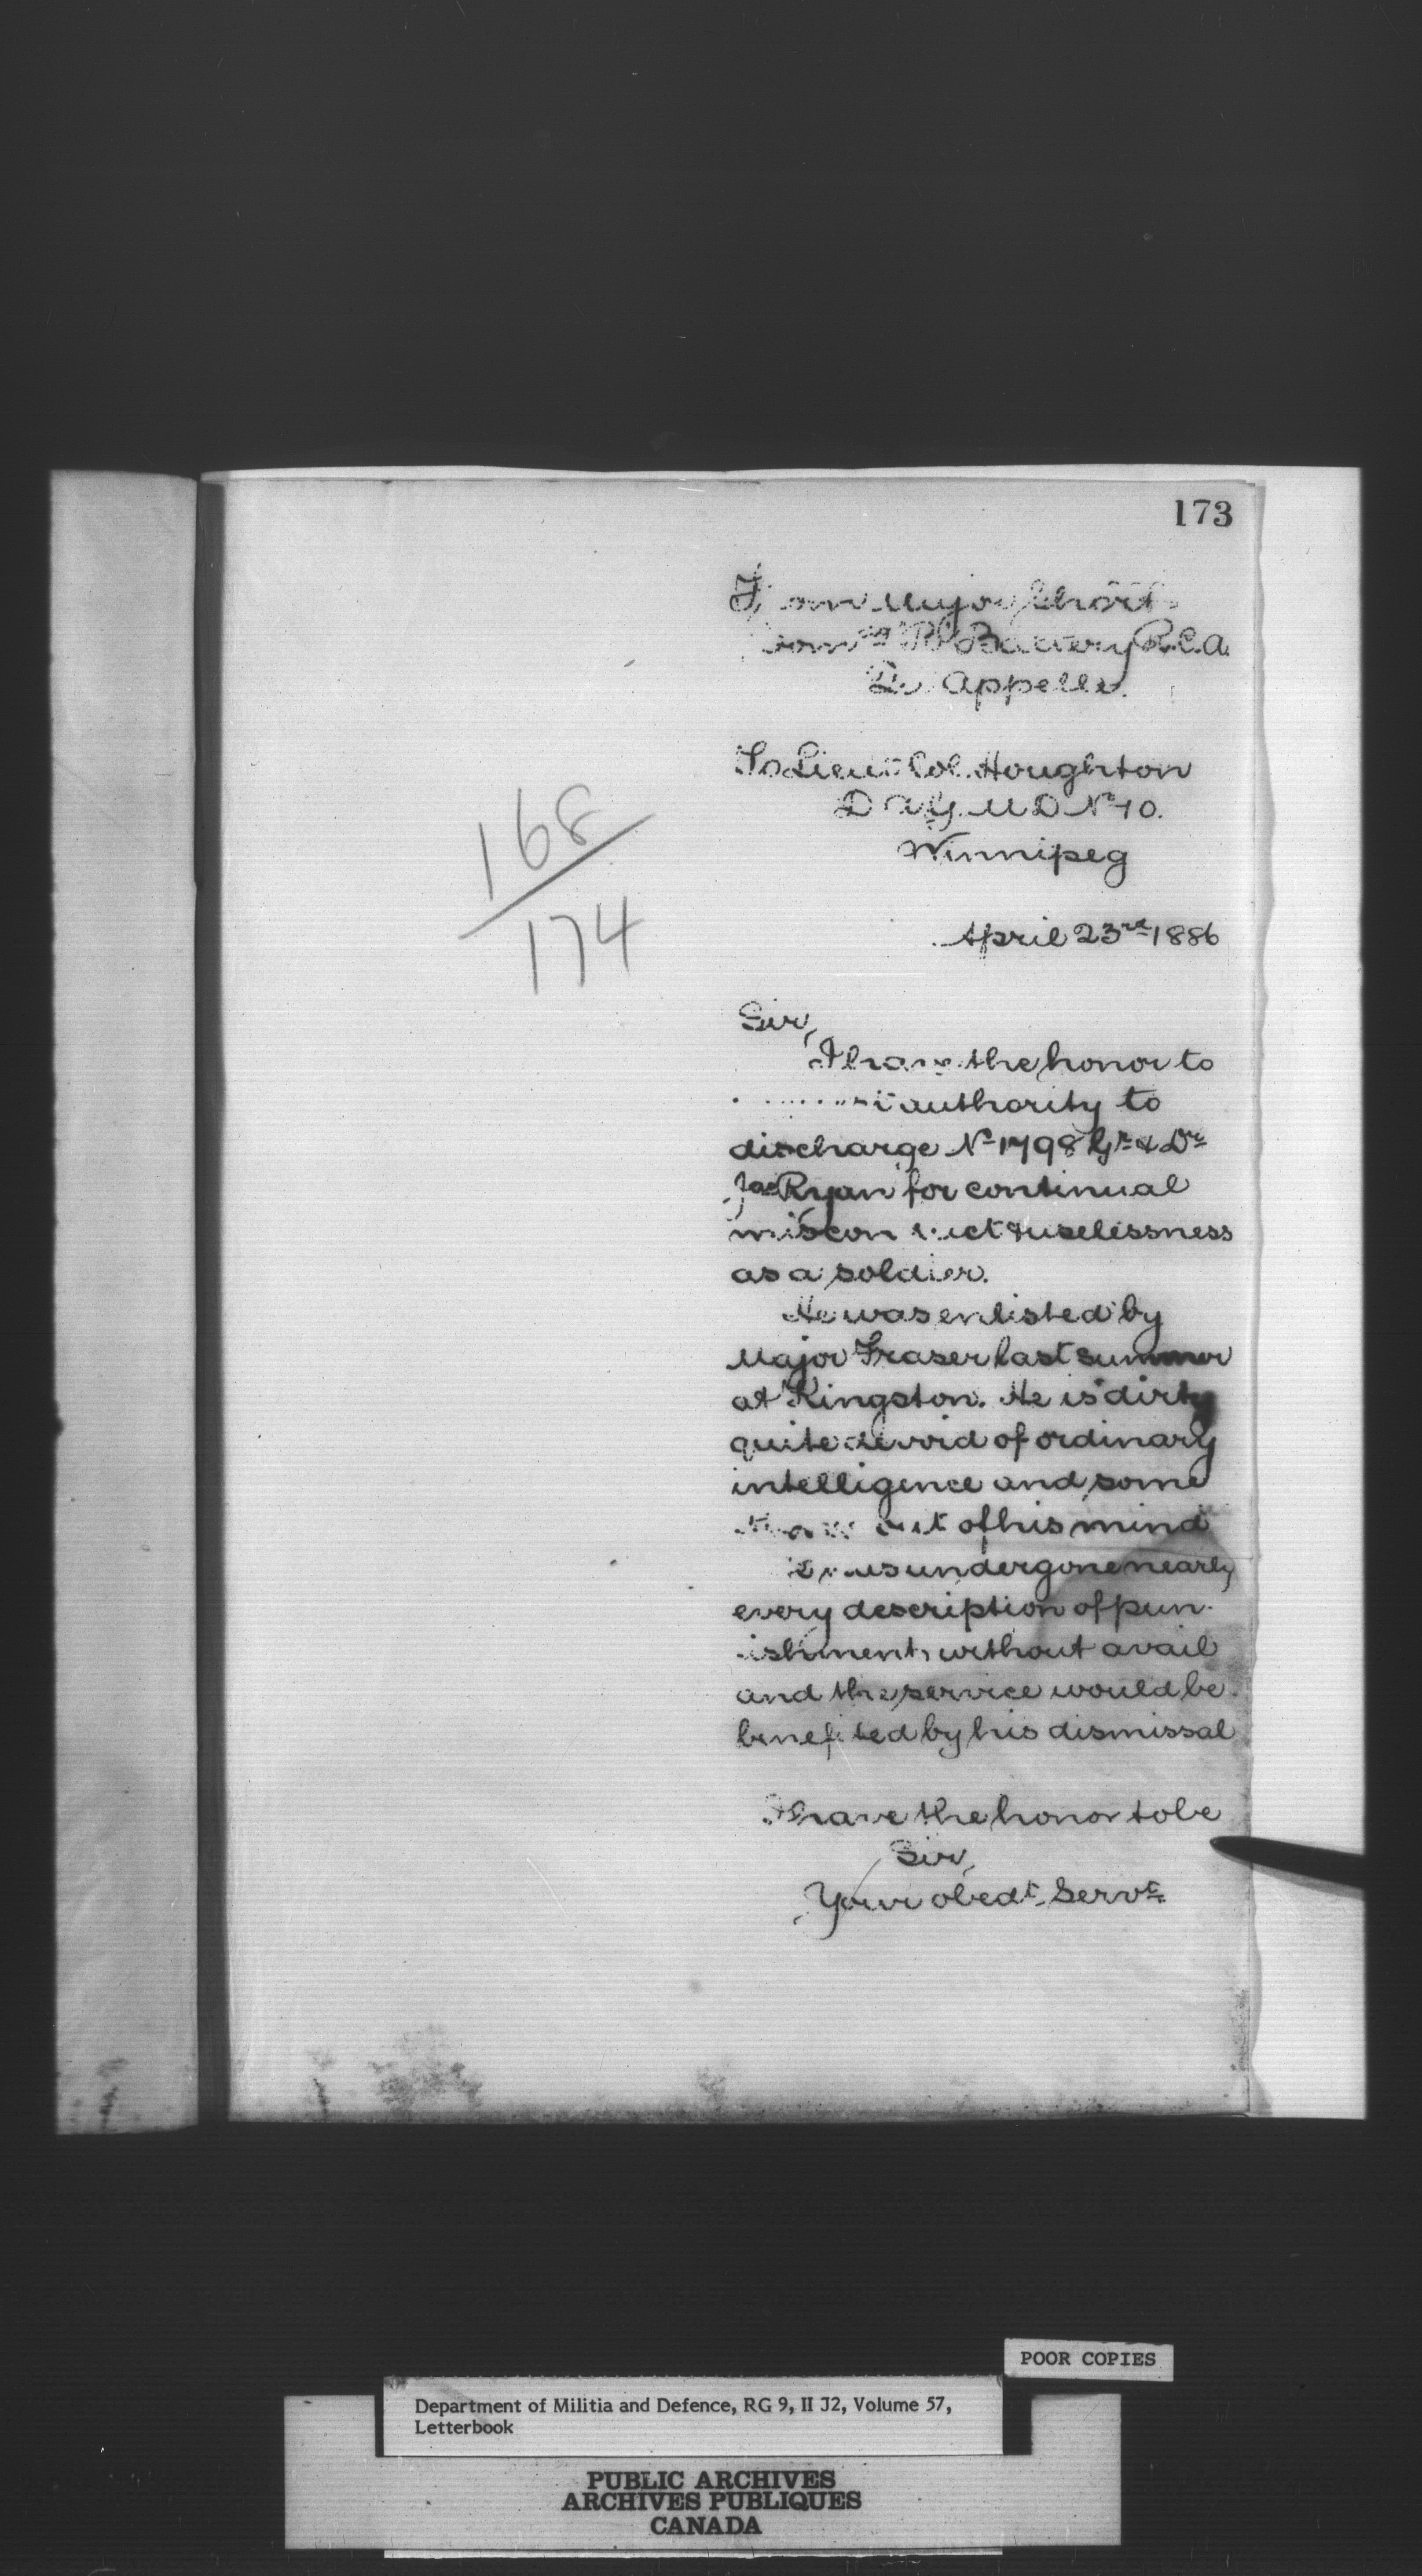 173
From Major Short
Comdg "B" Battery R.C.A.
Qu'Appelle.
To Lieut Col. Houghton
D A G. M D No 10.
Winnipeg
168
174
April 23rd 1886
Sir,
I have the honor to
authority to
discharge No 1798 Gr & Dr
Jas Ryan for continual
misconduct & uselessness
as a soldier.
He was enlisted by
Major Fraser last summer
at Kingston. He is dirty
quite devoid of ordinary
intelligence and some
out of his mind
undergone nearly
every description of pun-
ishment, without avail
and the service would be
benefited by his dismissal
I have the honor to be
Sir,
Your obedt Servt
POOR COPIES
Department of Militia and Defence, RG 9, II J2, Volume 57,
Letterbook
PUBLIC ARCHIVES
ARCHIVES PUBLIQUES
CANADA